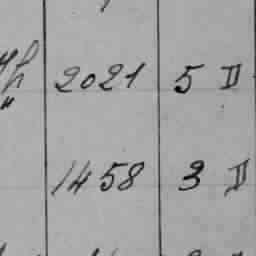 2021 5 II
1458 3 II